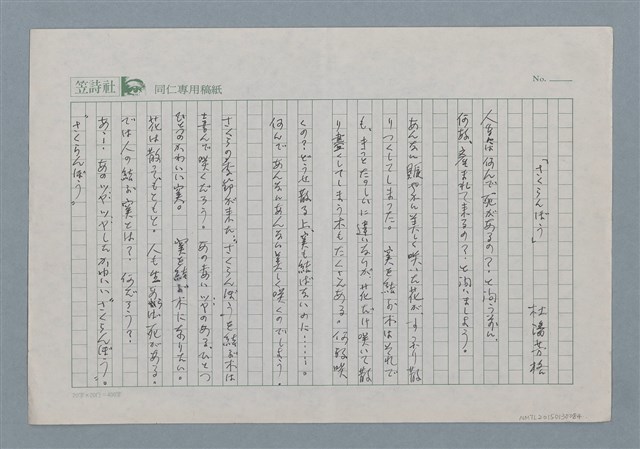 笠詩社
同仁専用稿紙
No.
「さくらんぼう」
杜潘芳格
人生は何んで死があるの？と問う前に
何故、産まれて来るの？と問いましょう。
あんなに賑やかに美しく咲いた花がすっかり散
りつくしてしまった。 実を結ぶ木はそれで
も、きっとたのしいに違いないが花だけ咲いて散
り盡くしてしまう木もたくさんある。何故咲
くの？どうせ散る上、実も結ばないのに……。
何んであんなにあんなに美しく咲くのでしょう。
さくらの季節が来た、"さくらんぼう"を結ぶ木は
喜んで咲くだろう。あのあゝツヤのある、ひとつ
ひとつのかわいい実。 実を結ぶ木になりたい。
花は散ってもともと。人も生あれば死がある。
では人の結ぶ実とは？何だろう？
あゝ！あのツヤツヤしたかわいい"さくらんぼう"。
"さくらんぼう"。
NMTL20150130184